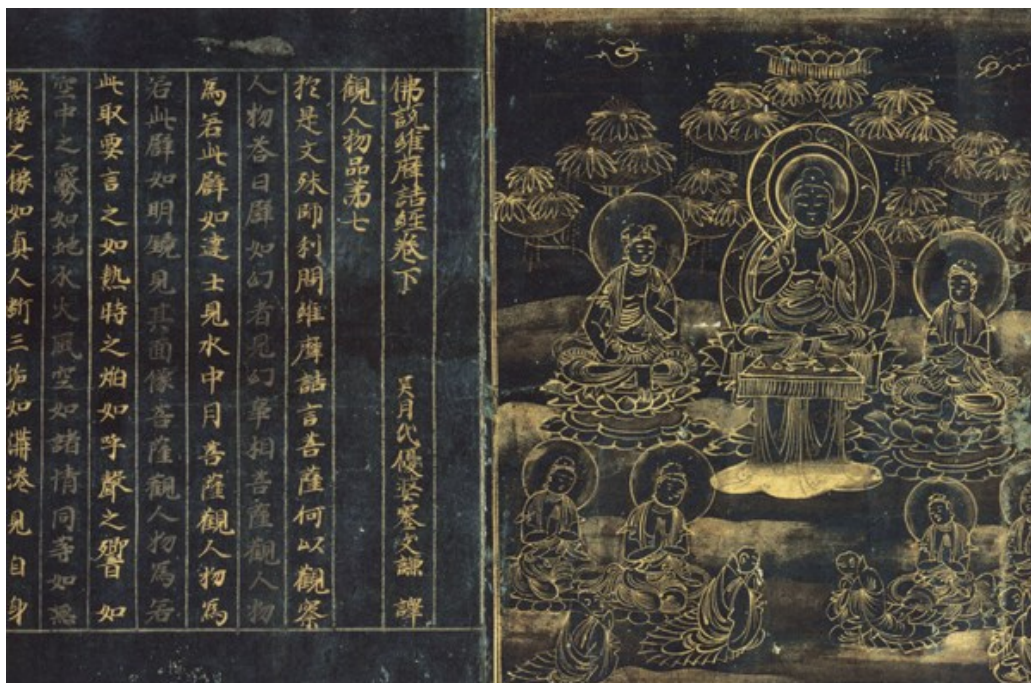 佛說維摩詰經卷下
觀人物品第七 吳月氏優婆塞支謙譯
於是文殊師利問維摩詰言菩薩何以觀察
人物答曰譬如幻者見幻事相菩薩觀人物
為若此譬如達士見水中月菩薩觀人物為
若此譬如明鏡見其面像菩薩觀人物為若
此取要言之如熱時之焰如呼聲之響如
空中之霧如地水火風空如諸情同等如無
無像之像如真人斷三垢如溝港見自身